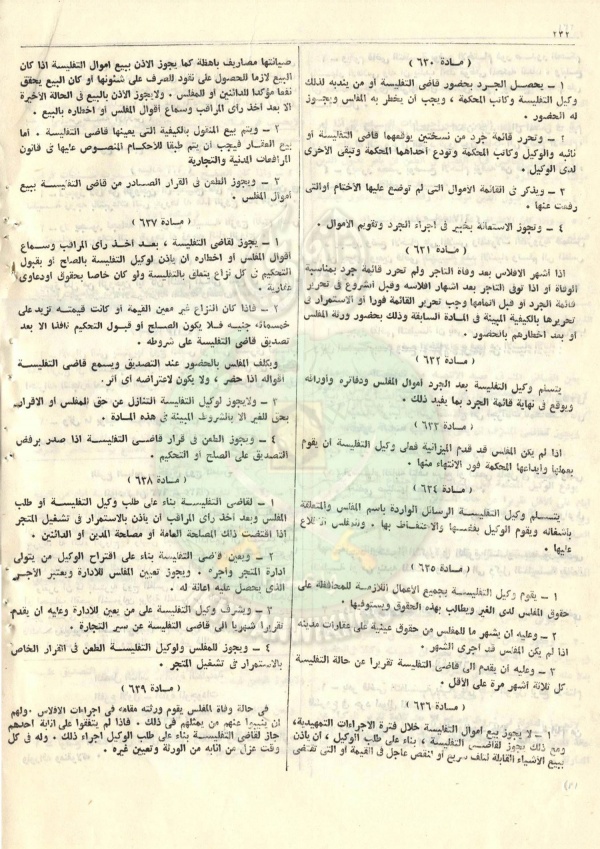 ٢٣٢
( مــادة ٦٣٠ )
١ – يحصـل الجـرد بحضـور قاضى التفليسة او من يندبه لذلك
وكيل التفليسة وكاتب المحكمة ، ويجب أن يخطر به المفلس ويجـوز
له الحضور .
٢ – وتحرر قائمة جرد من نسختين يوقعهما قاضى التفليسة او
نائبه والوكيل وكاتب المحكمة وتودع احداهما المحكمة وتبقى الاخرى
لدى الوكيل .
٣ – ويذكر فى القائمة الاموال التى لم توضع عليها الاختام اوالتى
رفعت عنها .
٤ – وتجوز الاستعانة بخبير فى اجراء الجرد وتقويم الاموال .
( مــادة ٦٣١ )
اذا أشهر الافلاس بعد وفاة التاجر ولم تحرر قائمة جرد بمناسبة
الوفاة او اذا توفى التاجر بعد اشهار افلاسه وقبل الشروع فى تحرير
قائمة الجرد او قبل اتمامها وجب تحرير القائمة فورا او الاستمرار فى
تحريرها بالكيفية المبينة فى المـادة السابقة وذلك بحضور ورثة المفلس
أو بعد اخطارهم بالحضور .
( مــادة ٦٣٢ )
يتسلم وكيل التفليسة بعد الجرد أموال المفلس ودفاتره وأوراقه
ويوقع فى نهاية قائمة الجرد بما يفيد ذلك .
( مــادة ٦٣٣ )
اذا لم يكن المفلس قد قدم الميزانية فعلى وكيل التفليسة أن يقوم
بعملها وايداعها المحكمة فور الانتهاء منها .
( مــادة ٦٣٤ )
يتسـلم وكيل التفليسـة الرسائل الواردة باسم المفلس والمتعلقة
باشغاله ويقوم الوكيل بفضهـا والاحتفـاظ بهـا . وللمفلس الاطلاع
عليها .
( مــادة ٦٣٥ )
١ – يقوم وكيل التفليسـة بجميع الاعمال اللازمـة للمحافظة على
حقوق المفلس لدى الغير ويطالب بهذه الحقوق ويستوفيها .
٢ – وعليه ان يشهر ما للمفلس من حقوق عينية على عقارات مدينيه
اذا لم يكن المفلس قد اجرى الشهر .
٣ – وعليه ان يقدم الى قاضى التفليسة تقريرا عن حالة التفليسة
كل ثلاثة أشهر مرة على الأقل .
( مــادة ٦٣٦ )
١ – لا يجوز بيع اموال التفليسة خلال فترة الاجراءات التمهيدية،
ومع ذلك يجوز لقاضى التفليسة ، بناء على طلب الوكيل ، ان يأذن
ببيع الأشياء القابلة لتلف سريع أو لنقص عاجل فى القيمة أو التى تقتضى
صيانتها مصاريف باهظة كما يجوز الاذن ببيع اموال التفليسة اذا كان
البيع لازما للحصول على نقود للصرف على شئونها أو كان البيع يحقق
نفعا مؤكدا للدائنين أو للمفلس . ولايجوز الاذن بالبيع فى الحالة الأخيرة
الا بعد اخذ رأى المراقب وسماع أقوال المفلس أو اخطاره بالبيع .
٢ – ويتم بيع المنقول بالكيفية التى يعينها قاضى التفليسـة . أما
بيع العقـار فيجب ان يتم طبقا للأحكام المنصوص عليها فى قانون
المرافعات المدنية والتجارية
٣ – ويجوز الطعن فى القرار الصـادر من قاضى التفليسة ببيع
أموال المفلس .
( مــادة ٦٣٧ )
١ – يجوز لقاضى التفليسة ، بعـد اخـذ رأى المراقب وسـماع
أقوال المفلس أو اخطاره ان يأذن لوكيل التفليسة بالصلح أو بقبول
التحكيم فى كل نزاع يتعلق بالتفليسة ولو كان خاصا بحقوق اودعاوى
عقارية .
٢ – فاذا كان النزاع غير معين القيمة أو كانت قيمتـه تزيد على
خمسمائة جنيـه فـلا يكون الصلـح أو قبول التحكيم نافذا الا بعد
تصديق قاضى التفليسة على شروطه .
ويكلف المفلس بالحضور عند التصديق ويسمع قاضى التفليسـة
أقواله اذا حضر ، ولا يكون لاعتراضه أى أثر .
٣ – ولايجوز لوكيل التفليسة التنازل عن حق للمفلس او الاقرار
بحق للغير الا بالشروط المبينة فى هذه المادة .
٤ – ويجوز الطعن فى قرار قاضـى التفليسـة اذا صدر برفض
التصديق على الصلح أو التحكيم .
( مــادة ٦٣٨ )
١ – لقاضى التفليسـة بناء على طلب وكيل التفليسـة أو طلب
المفلس وبعد أخذ رأى المراقب أن يأذن بالاستمرار فى تشغيل المتجر
اذا اقتضت ذلك المصلحة العامة أو مصلحة المدين أو الدائنين .
٢ – ويعين قاضى التفليسة بناء على اقتراح الوكيل من يتولى
ادارة المتجر وأجره . ويجوز تعيين المفلس للادارة ويعتبر الأجر
الذى يحصل عليه اعانة له .
٣ – ويشرف وكيل التفليسة على من يعين للادارة وعليه ان يقدم
تقريرا شهريا الى قاضى التفليسة عن سير التجارة .
٤ – ويجوز للمفلس ولوكيل التفليسـة الطعن فى القرار الخاص
بالاستمرار فى تشغيل المتجر .
( مــادة ٦٣٩ )
فى حالة وفاة المفلس يقوم ورثته مقامه فى اجراءات الافلاس .ولهم
أن ينيبوا عنهم من يمثلهم فى ذلك . فاذا لم يتفقوا على انابة احدهم
جاز لقاضى التفليسـة بناء على طلب الوكيل اجراء ذلك . وله فى كل
وقت عزل من انابه من الورثة وتعيين غيره .